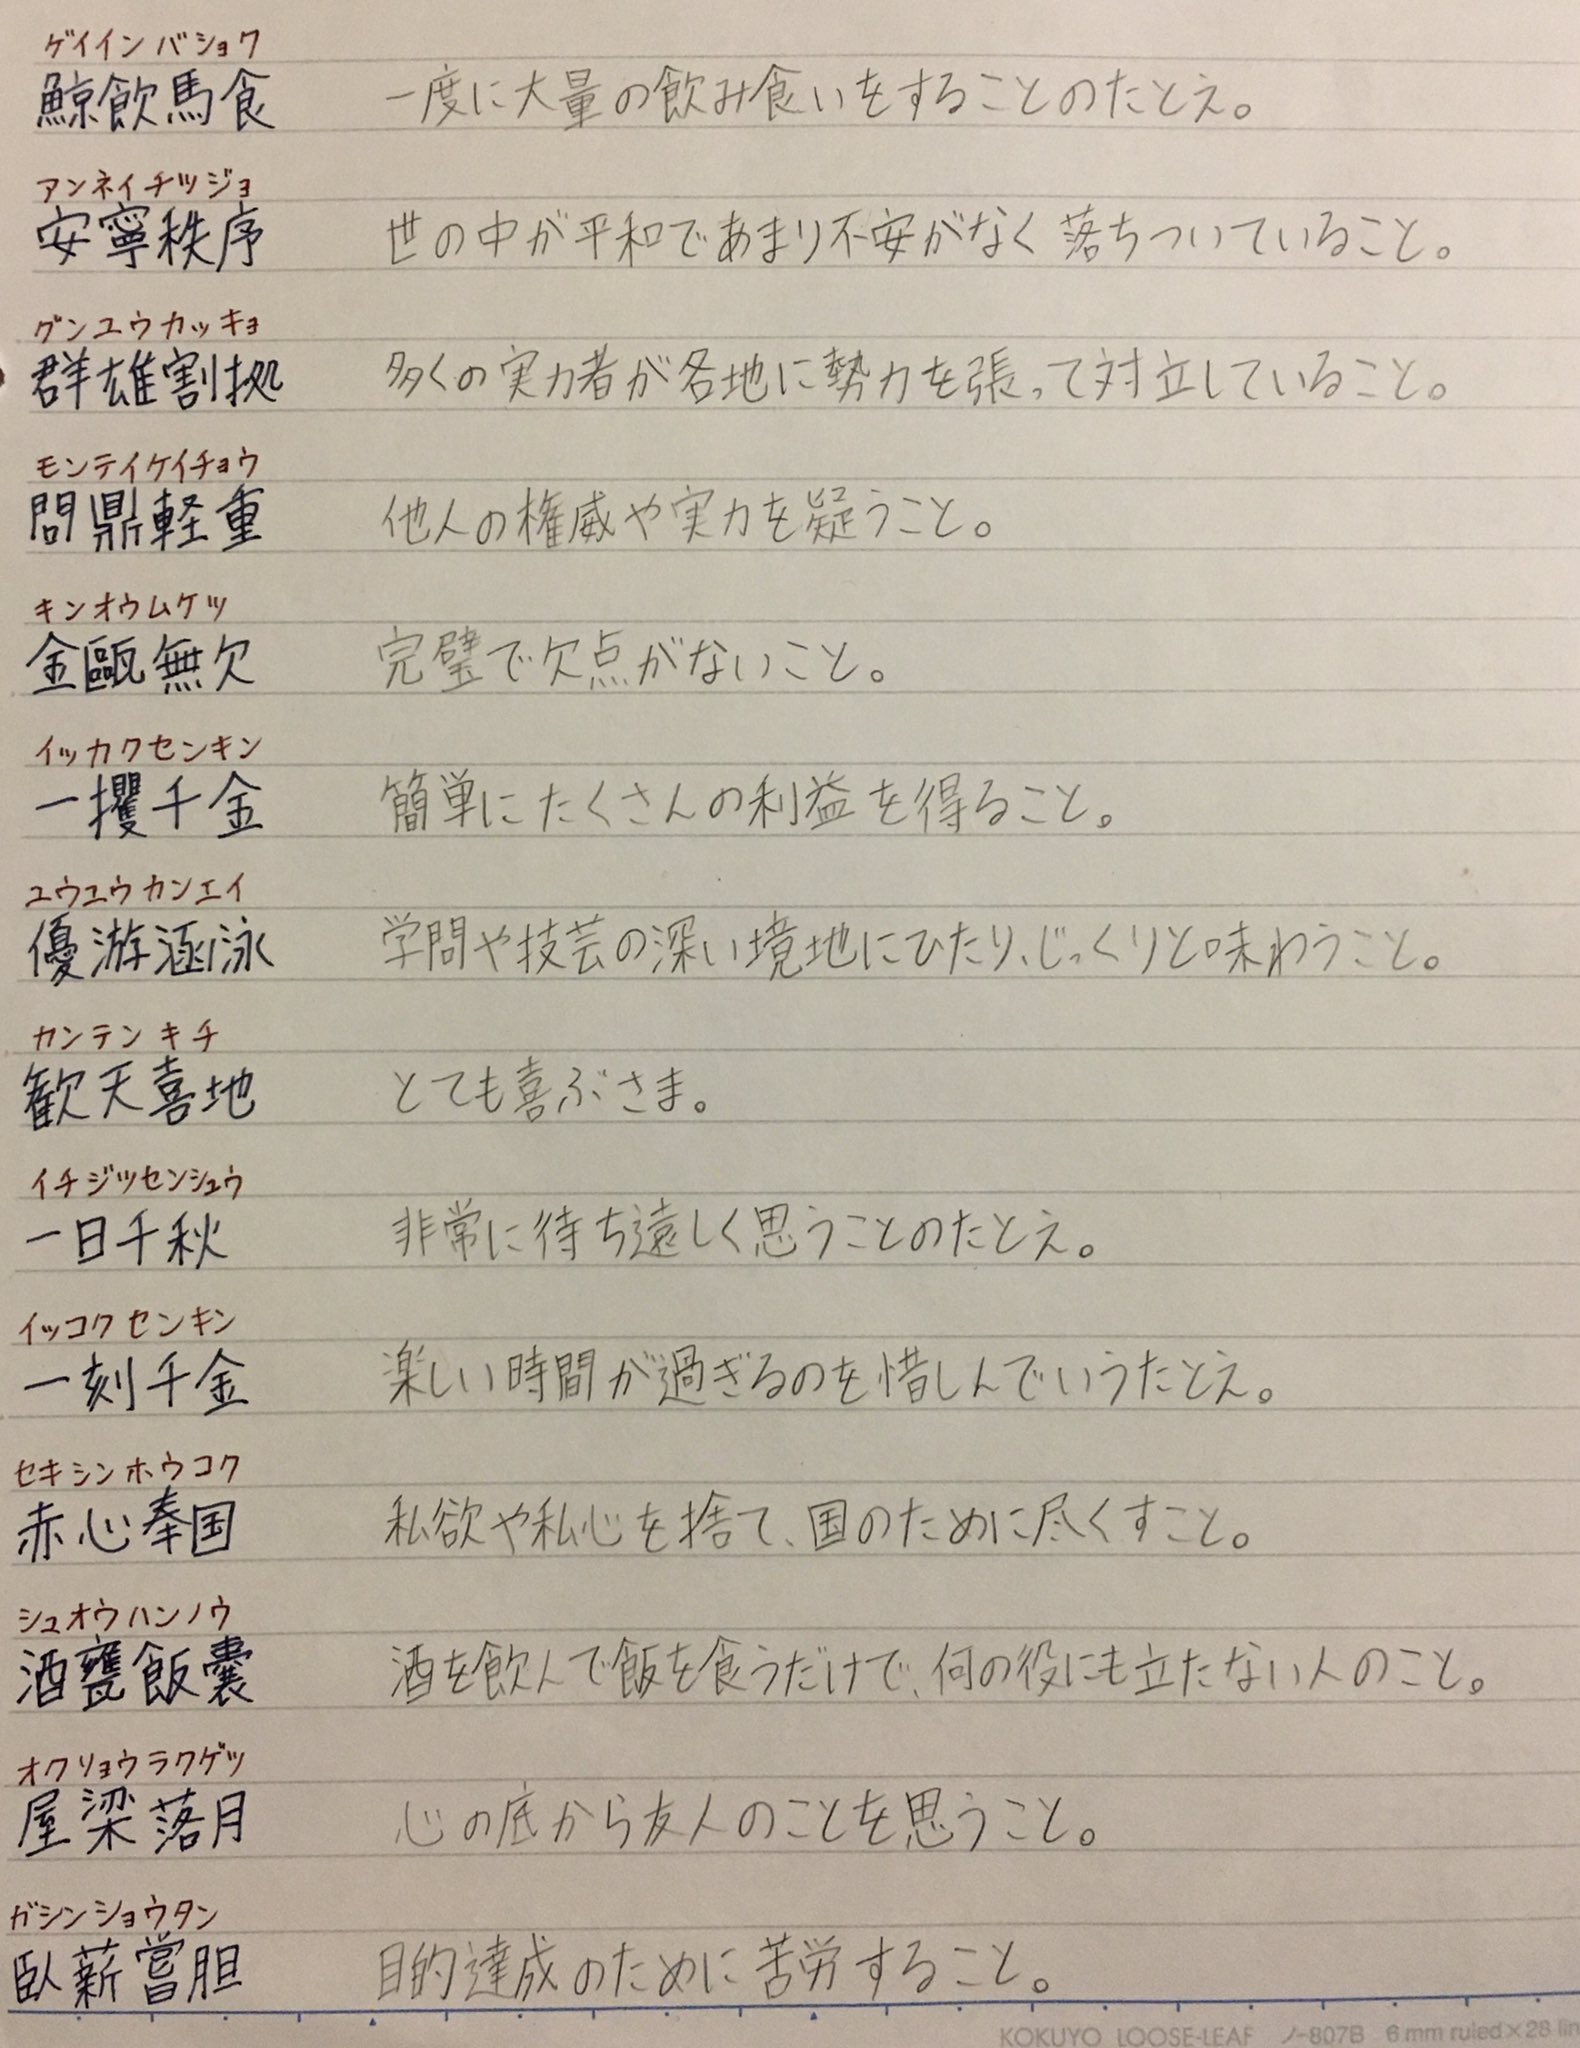 ゲイインバショク
鯨飲馬食 一度に大量の飲み食いをすることのたとえ。
アンネイチツジョ
安寧秩序 世の中が平和であまり不安がなく落ちついていること。
グンユウカッキョ
群雄割拠 多くの実力者が各地に勢力を張って対立していること。
モンテイケイチョウ
問鼎軽重 他人の権威や実力を疑うこと。
キンオウムケツ
金甌無欠 完璧で欠点がないこと。
イッカクセンキン
一攫千金 簡単にたくさんの利益を得ること。
ユウユウカンエイ
優游涵泳 学問や技芸の深い境地にひたり、じっくりと味わうこと。
カンテンキチ
歓天喜地 とても喜ぶさま。
イチジツセンシュウ
一日千秋 非常に待ち遠しく思うことのたとえ。
イッコクセンキン
一刻千金 楽しい時間が過ぎるのを惜しんでいうたとえ。
セキシンホウコク
赤心奉国 私欲や私心を捨て、国のために尽くすこと。
シュオウハンノウ
酒甕飯嚢 酒を飲んで飯を食うだけで、何の役にも立たない人のこと。
オクリョウラクゲツ
屋梁落月 心の底から友人のことを思うこと。
ガシンショウタン
臥薪嘗胆 目的達成のために苦労すること。
KOKUYO LOOSE-LEAF ノ-807B 6mm ruled×28 lin